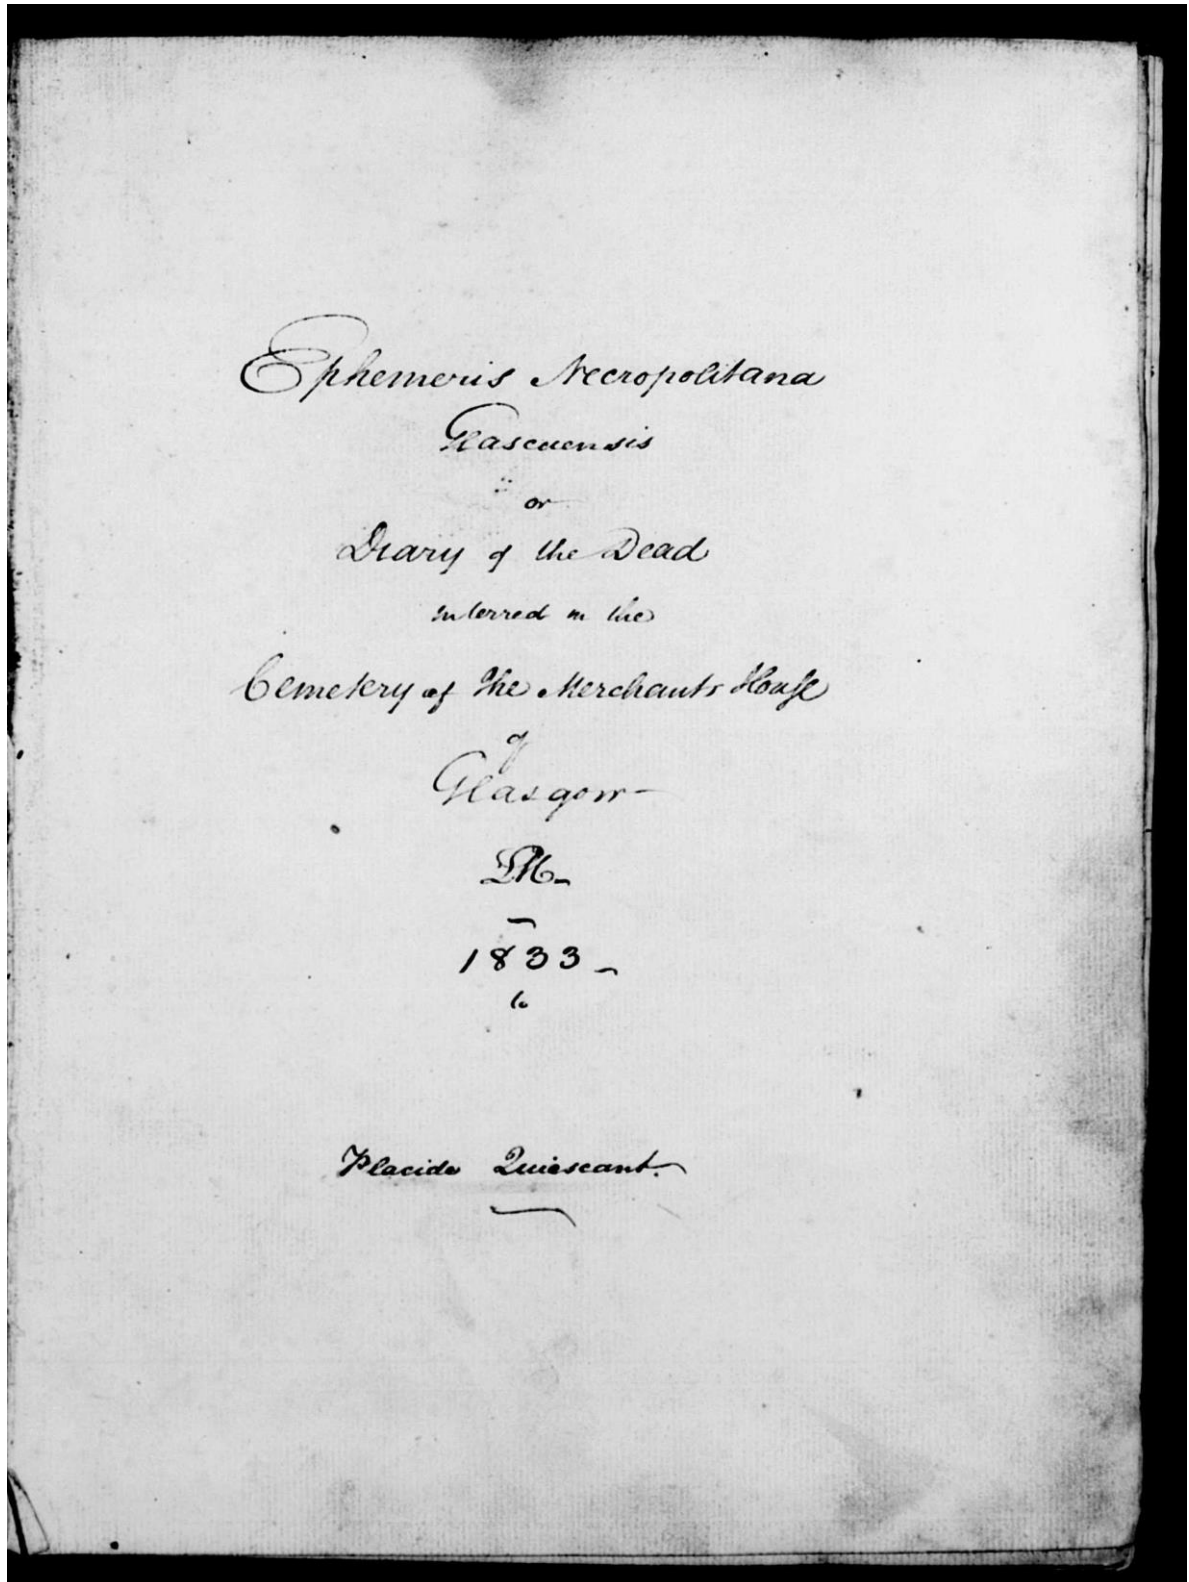 Ephemeris Necropolitana
Glascuensis
or
Diary of the Dead
interred in the
Cemetery of the Merchants House
of
Glasgow -
1833 -
to
Placide Quiescant.